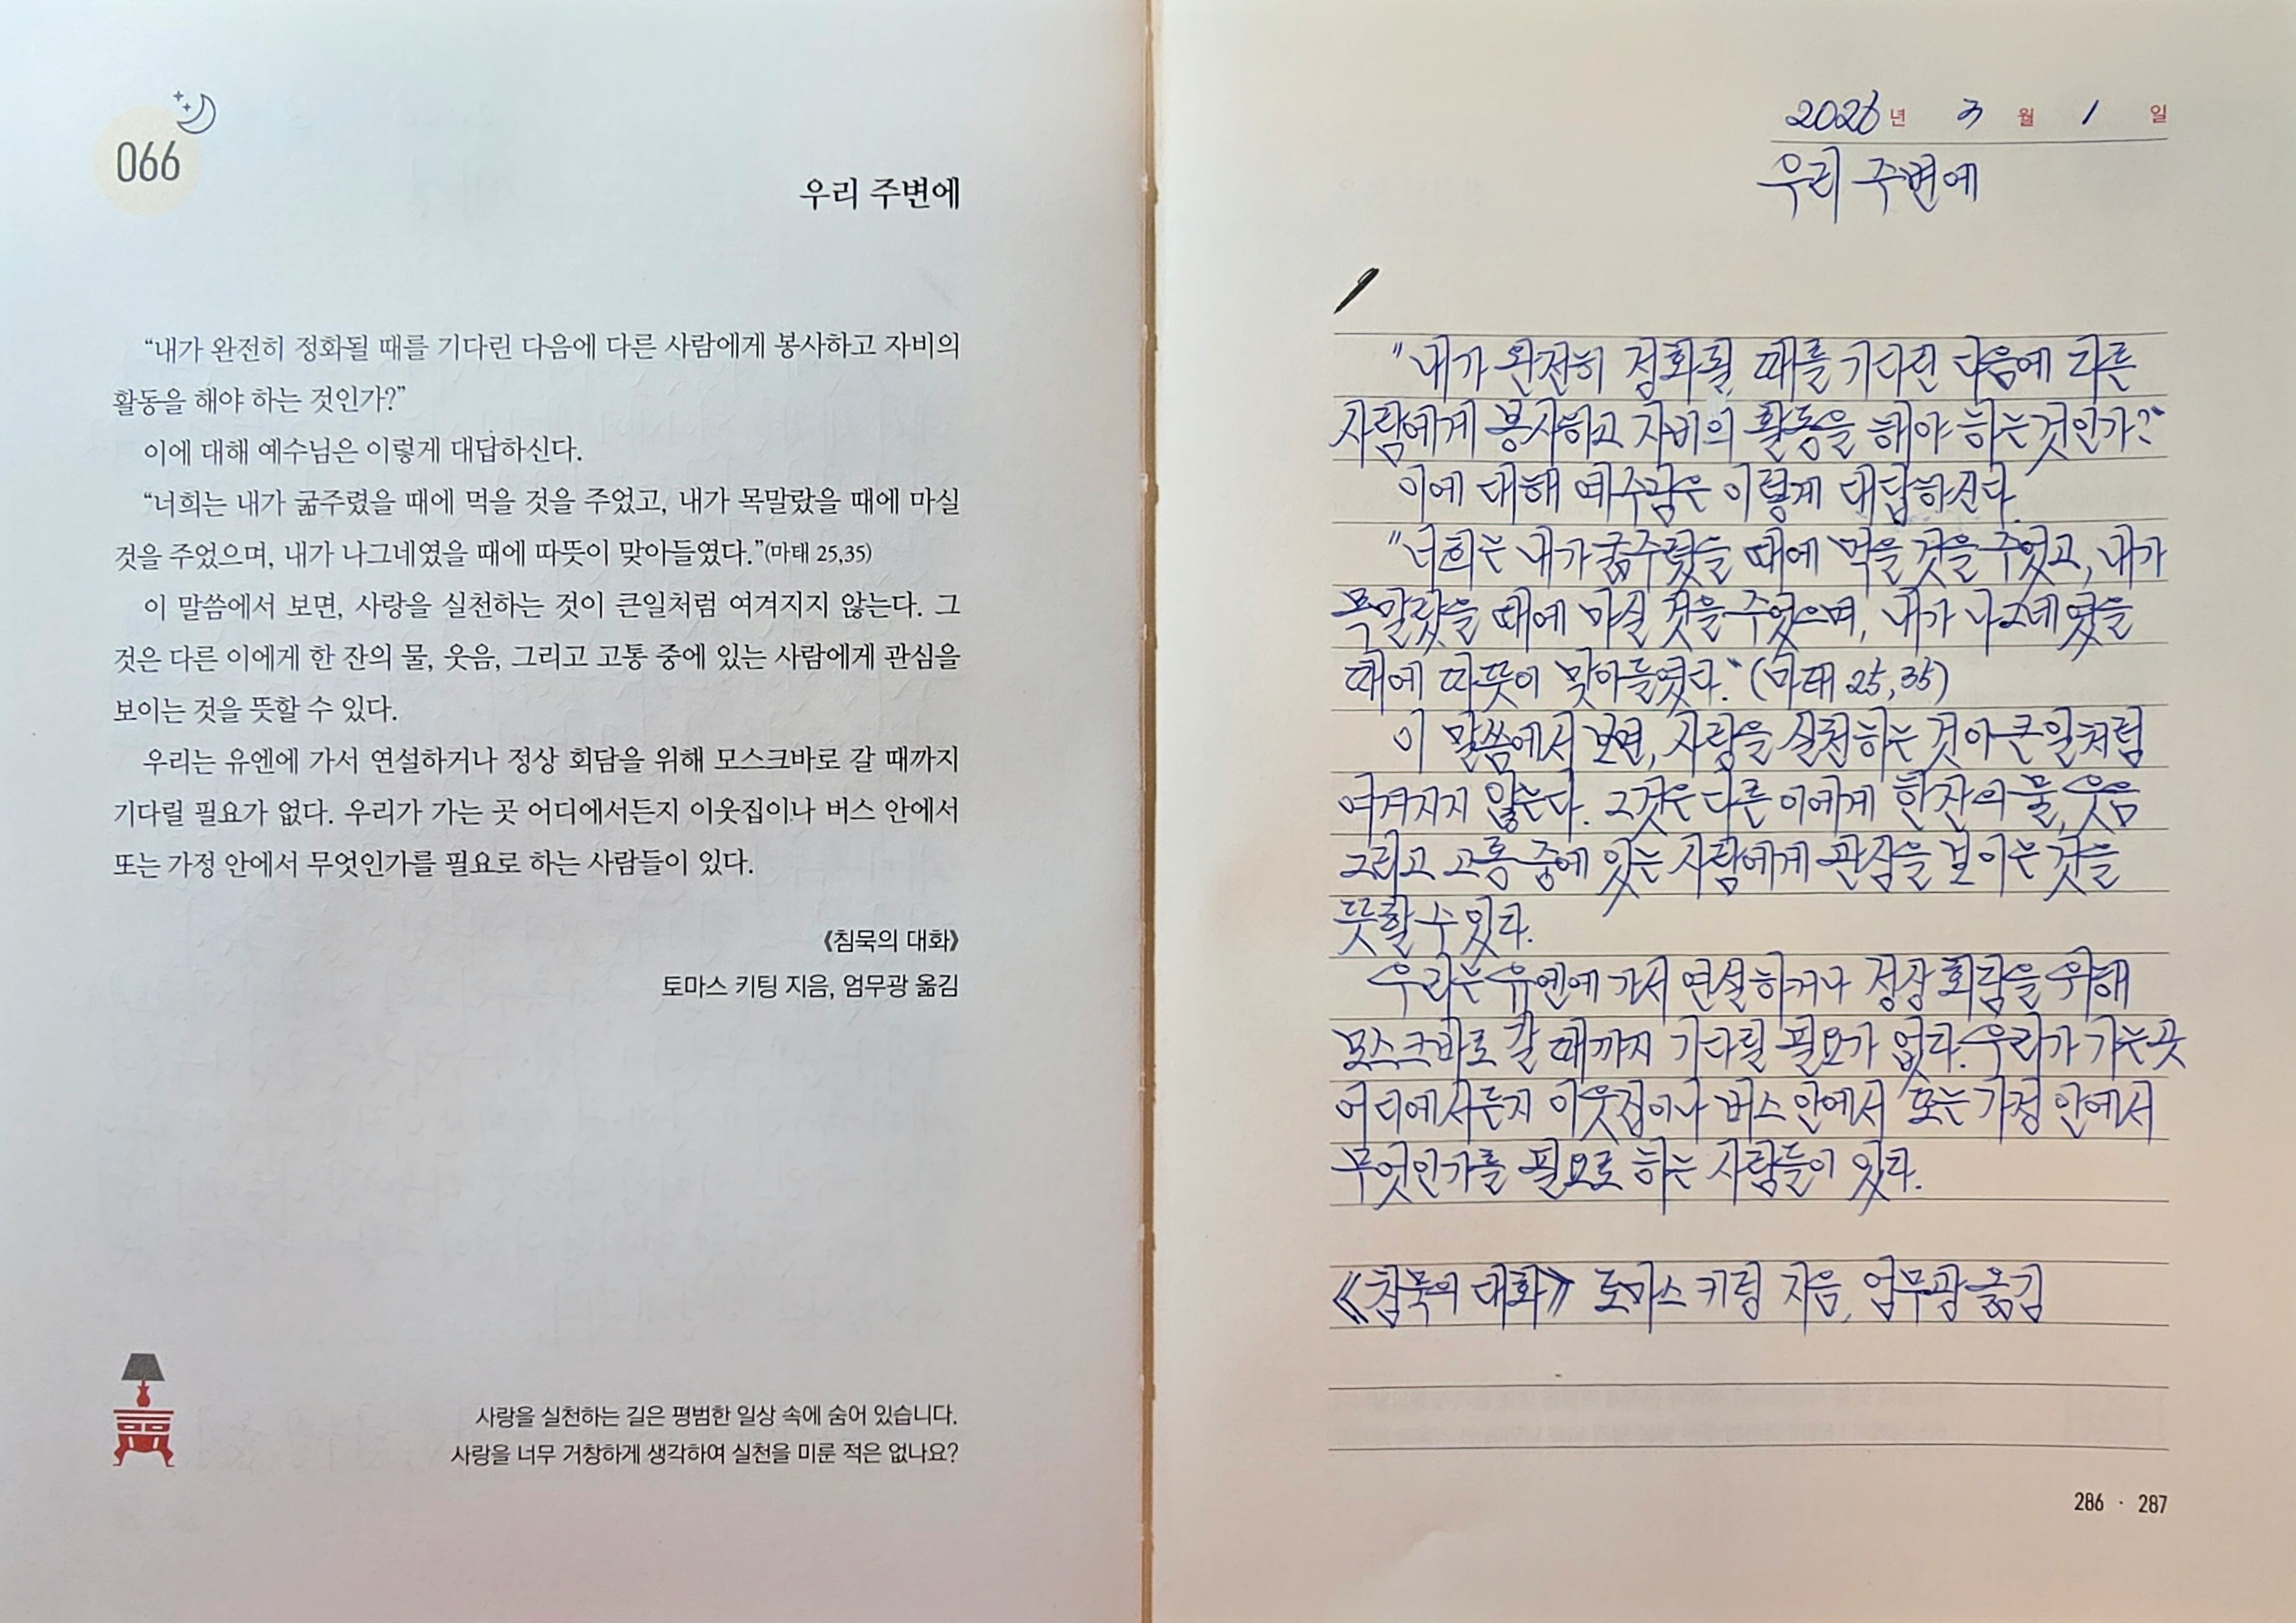 066
우리 주변에
“내가 완전히 정화될 때를 기다린 다음에 다른 사람에게 봉사하고 자비의
활동을 해야 하는 것인가?”
이에 대해 예수님은 이렇게 대답하신다.
“너희는 내가 굶주렸을 때에 먹을 것을 주었고, 내가 목말랐을 때에 마실
것을 주었으며, 내가 나그네였을 때에 따뜻이 맞아들였다.”(마태 25,35)
이 말씀에서 보면, 사랑을 실천하는 것이 큰일처럼 여겨지지 않는다. 그
것은 다른 이에게 한 잔의 물, 웃음, 그리고 고통 중에 있는 사람에게 관심을
보이는 것을 뜻할 수 있다.
우리는 유엔에 가서 연설하거나 정상 회담을 위해 모스크바로 갈 때까지
기다릴 필요가 없다. 우리가 가는 곳 어디에서든지 이웃집이나 버스 안에서
또는 가정 안에서 무엇인가를 필요로 하는 사람들이 있다.
《침묵의 대화》
토마스 키팅 지음, 엄무광 옮김
사랑을 실천하는 길은 평범한 일상 속에 숨어 있습니다.
사랑을 너무 거창하게 생각하여 실천을 미룬 적은 없나요?
2026년 3월 1일
우리 주변에
"내가 완전히 정화될 때를 기다린 다음에 다른
사람에게 봉사하고 자비의 활동을 해야 하는것인가?"
이에 대해 예수님은 이렇게 대답하신다.
"너희는 내가 굶주렸을 때에 먹을 것을 주었고, 내가
목말랐을 때에 마실 것을 주었으며, 내가 나그네였을
때에 따뜻이 맞아들였다." (마태 25,35)
이 말씀에서 보면, 사랑을 실천하는 것이 큰일처럼
여겨지지 않는다. 그것은 다른 이에게 한잔의 물, 웃음
그리고 고통 중에 있는 사람에게 관심을 보이는 것을
뜻할 수 있다.
우리는 유엔에 가서 연설하거나 정상 회담을 위해
모스크바로 갈 때까지 기다릴 필요가 없다. 우리가 가는곳
어디에서든지 이웃집이나 버스 안에서 또는 가정 안에서
무엇인가를 필요로 하는 사람들이 있다.
《침묵의 대화》 토마스 키팅 지음, 엄무광 옮김
286 · 287